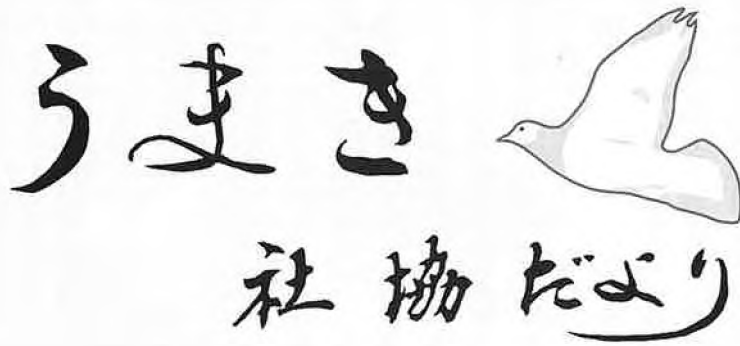 うまき
社協だより